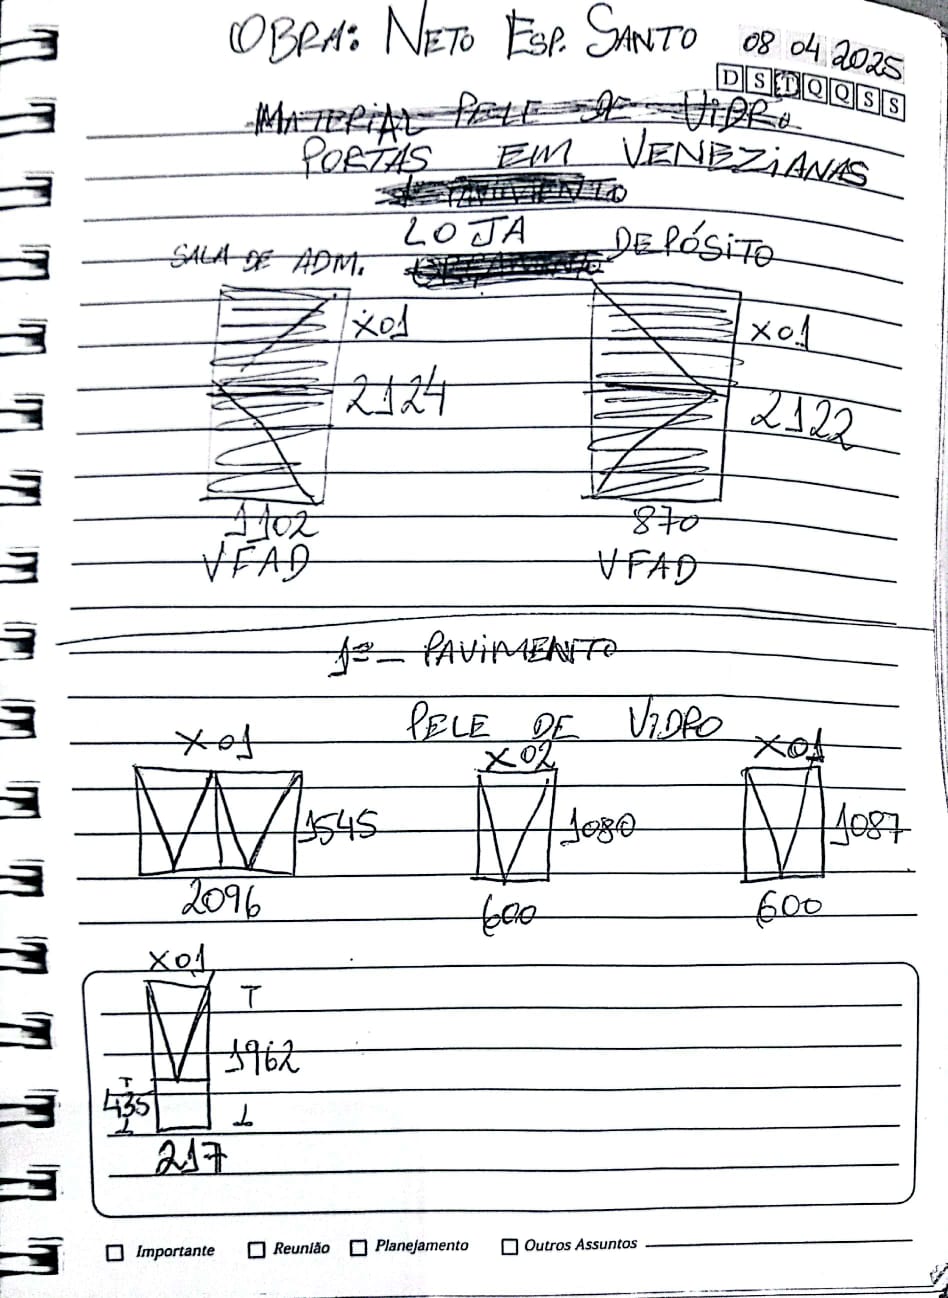 OBRA: NETO ESP. SANTO
08 04 2025
D S T Q Q S S
MATERIAL PELE DE VIDRO
PORTAS EM VENEZIANAS
LOJA
SALA DE ADM.
DEPÓSITO
X01
X01
2124
2122
1102
870
VFAD
VFAD
1º - PAVIMENTO
PELE DE VIDRO
X01
X02
X01
1545
1080
1087
2096
600
600
X01
T
1962
T
435
⊥
⊥
217
Importante
Reunião
Planejamento
Outros Assuntos